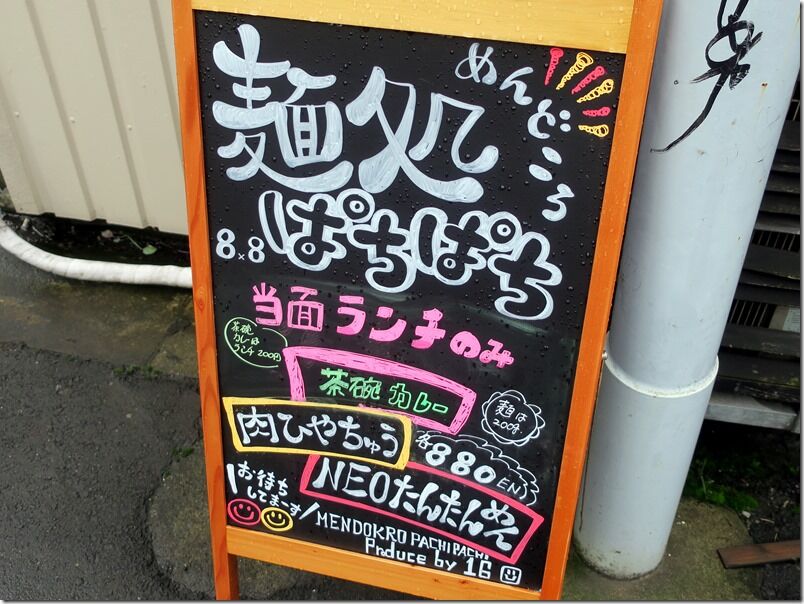 めんどころ
麺処
8×8 ぱちぱち
当面ランチのみ
茶碗
カレーは
ランチ200円
茶碗 カレー
麺は
200g.
肉ひやちゅう
各880EN
NEOたんたんめん
お待ち
してまーす
MENDOKRO PACHIPACHI
Prduce by 16